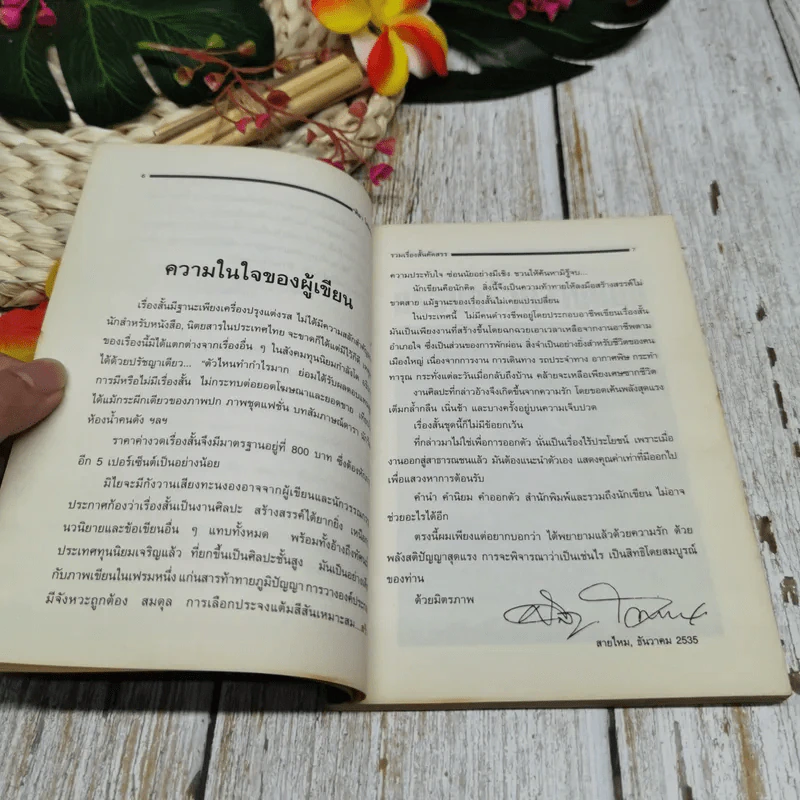 6
ความในใจของผู้เขียน
เรื่องสั้นมีฐานะเพียงเครื่องปรุงแต่งรส ไม่ได้มีความสลักสำคัญ
นักสำหรับหนังสือ, นิตยสารในประเทศไทย จะขาดก็ได้แต่มีไว้ก็ดี
ของเรื่องนี้มิได้แตกต่างจากเรื่องอื่น ๆ ในสังคมทุนนิยมกำลังโต
ได้ด้วยปรัชญาเดียว... "ตัวไหนทำกำไรมาก ย่อมได้รับผลตอบ
การมีหรือไม่มีเรื่องสั้น ไม่กระทบต่อยอดโฆษณาและยอดขาย
ได้แม้กระผีกเดียวของภาพปก ภาพชุดแฟชั่น บทสัมภาษณ์ดารา
ห้องน้ำคนดัง ฯลฯ
ราคาค่างวดเรื่องสั้นจึงมีมาตรฐานอยู่ที่ 800 บาท ซึ่งต้อง
อีก 5 เปอร์เซ็นต์เป็นอย่างน้อย
มิไยจะมีกังวานเสียงทะนงองอาจจากผู้เขียนและนักวรรณ
ประกาศก้องว่าเรื่องสั้นเป็นงานศิลปะ สร้างสรรค์ได้ยากยิ่ง
นวนิยายและข้อเขียนอื่น ๆ แทบทั้งหมด พร้อมทั้งอ้างถึง
ประเทศทุนนิยมเจริญแล้ว ที่ยกขึ้นเป็นศิลปะชั้นสูง มันเป็นอย่าง
กับภาพเขียนในเฟรมหนึ่ง แก่นสารท้าทายภูมิปัญญา การวางองค์
มีจังหวะถูกต้อง สมดุล การเลือกประจงแต้มสีสันเหมาะสม...
รวมเรื่องสั้นคัดสรร 7
ความประทับใจ ซ่อนนัยอย่างมีเชิง ชวนให้ค้นหามิรู้จบ...
นักเขียนคือนักคิด สิ่งนี้จึงเป็นความท้าทายให้ลงมือสร้างสรรค์ไม่
ขาดสาย แม้ฐานะของเรื่องสั้นไม่เคยแปรเปลี่ยน
ในประเทศนี้ ไม่มีคนดำรงชีพอยู่โดยประกอบอาชีพเขียนเรื่องสั้น
มันเป็นเพียงงานที่สร้างขึ้นโดยฉกฉวยเอาเวลาเหลือจากงานอาชีพตาม
อำเภอใจ ซึ่งเป็นส่วนของการพักผ่อน สิ่งจำเป็นอย่างยิ่งสำหรับชีวิตของคน
เมืองใหญ่ เนื่องจากการงาน การเดินทาง รถประจำทาง อากาศพิษ กระทำ
ทารุณ กระทั่งแต่ละวันเมื่อกลับถึงบ้าน คล้ายจะเหลือเพียงเศษซากชีวิต
งานศิลปะที่กล่าวอ้างจึงเกิดขึ้นจากความรัก โดยขอดเค้นพลังสุดแรง
เต็มกล้ำกลืน เนิ่นช้า และบางครั้งอยู่บนความเจ็บปวด
เรื่องสั้นชุดนี้ก็ไม่มีข้อยกเว้น
ที่กล่าวมาไม่ใช่เพื่อการออกตัว นั่นเป็นเรื่องไร้ประโยชน์ เพราะเมื่อ
งานออกสู่สาธารณชนแล้ว มันต้องแนะนำตัวเอง แสดงคุณค่าเท่าที่มีออกไป
เพื่อแสวงหาการต้อนรับ
คำนำ คำนิยม คำออกตัว สำนักพิมพ์และรวมถึงนักเขียน ไม่อาจ
ช่วยอะไรได้อีก
ตรงนี้ผมเพียงแต่อยากบอกว่า ได้พยายามแล้วด้วยความรัก ด้วย
พลังสติปัญญาสุดแรง การจะพิจารณาว่าเป็นเช่นไร เป็นสิทธิโดยสมบูรณ์
ของท่าน
ด้วยมิตรภาพ
สายไหม, ธันวาคม 2535